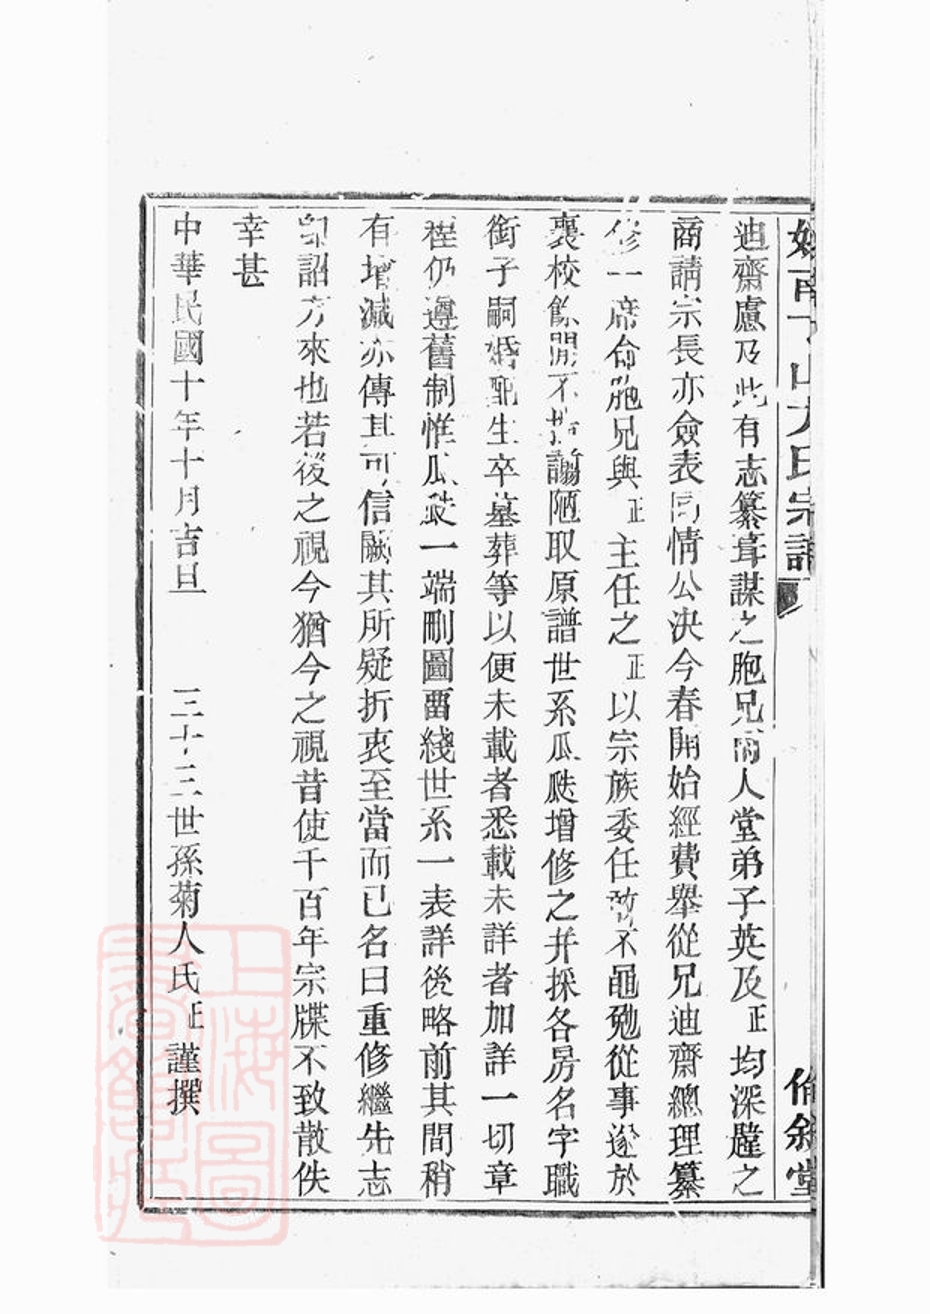 姚南丁山方氏宗譜 倫敘堂
迪齋慮及此有志纂葺謀之胞兄雨人堂弟子英及正均深韙之
商請宗長亦僉表同情公決今春開始經費舉從兄迪齋總理纂
修一席命胞兄與正主任之正以宗族委任敢不黽勉從事遂於
襄校餘閒不揣謭陋取原譜世系瓜瓞增修之幷採各房名字職
銜子嗣婚配生卒墓葬等以便未載者悉載未詳者加詳一切章
程仍遵舊制惟瓜瓞一端刪圖畱綫世系一表詳後略前其間稍
有增減亦傳其可信闕其所疑折衷至當而已名曰重修繼先志
卽詔方來也若後之視今猶今之視昔使千百年宗牒不致散佚
幸甚
中華民國十年十月吉旦 三十三世孫菊人氏正謹撰
上海圖書館藏